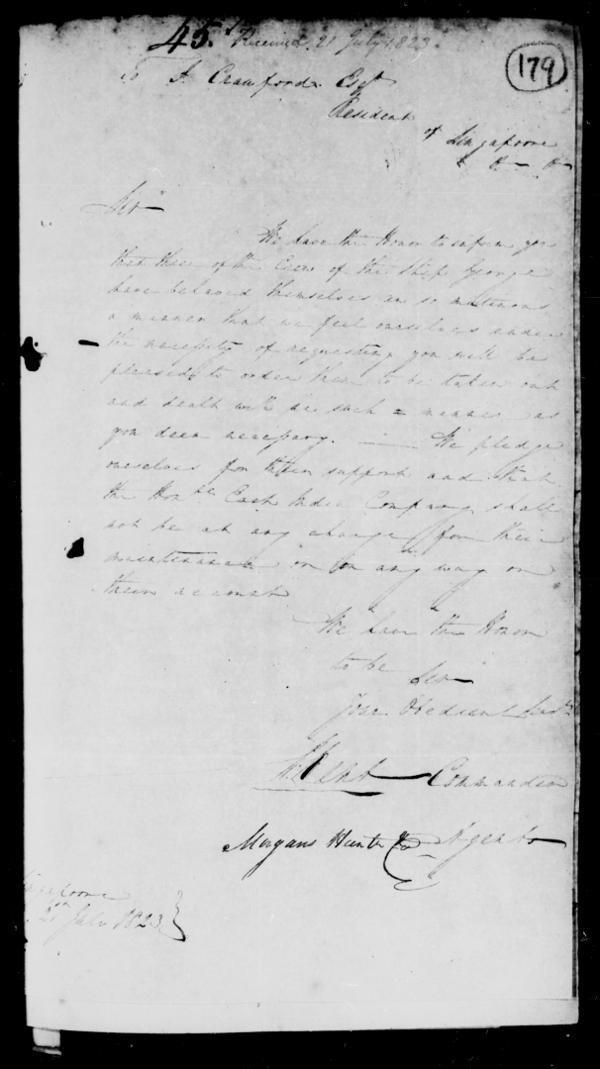 45. Received 21 July 1823
179
To J. Crawford Esqr
Resident
of Singapoore
Sir
We have the Honor to inform you
that three of the Crew of the Ship George
have behaved themselves in so mutinous
a manner that we feel ourselves under
the necessity of requesting you will be
pleased to order them to be taken out
and dealt with in such a manner as
you deem necessary. — We pledge
ourselves for their support and that
the Honble East India Company shall
not be at any charge for their
maintenance or in any way on
their account
We have the Honor
to be Sir
Your Obedient Servts
Commander
Morgans Hunter & Co Agents
Singapoore
July 1823